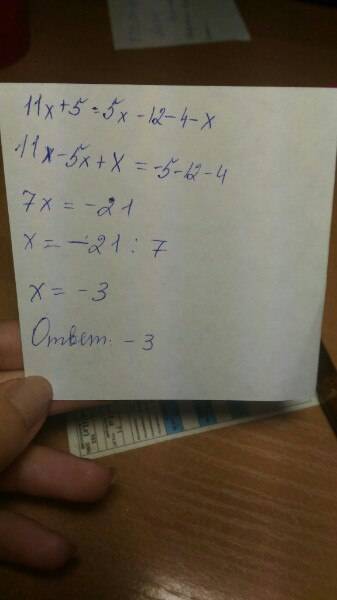 11x+5=5x-12-4-x
11x-5x+x=-5-12-4
7x=-21
x=-21:7
x=-3
Ответ. -3